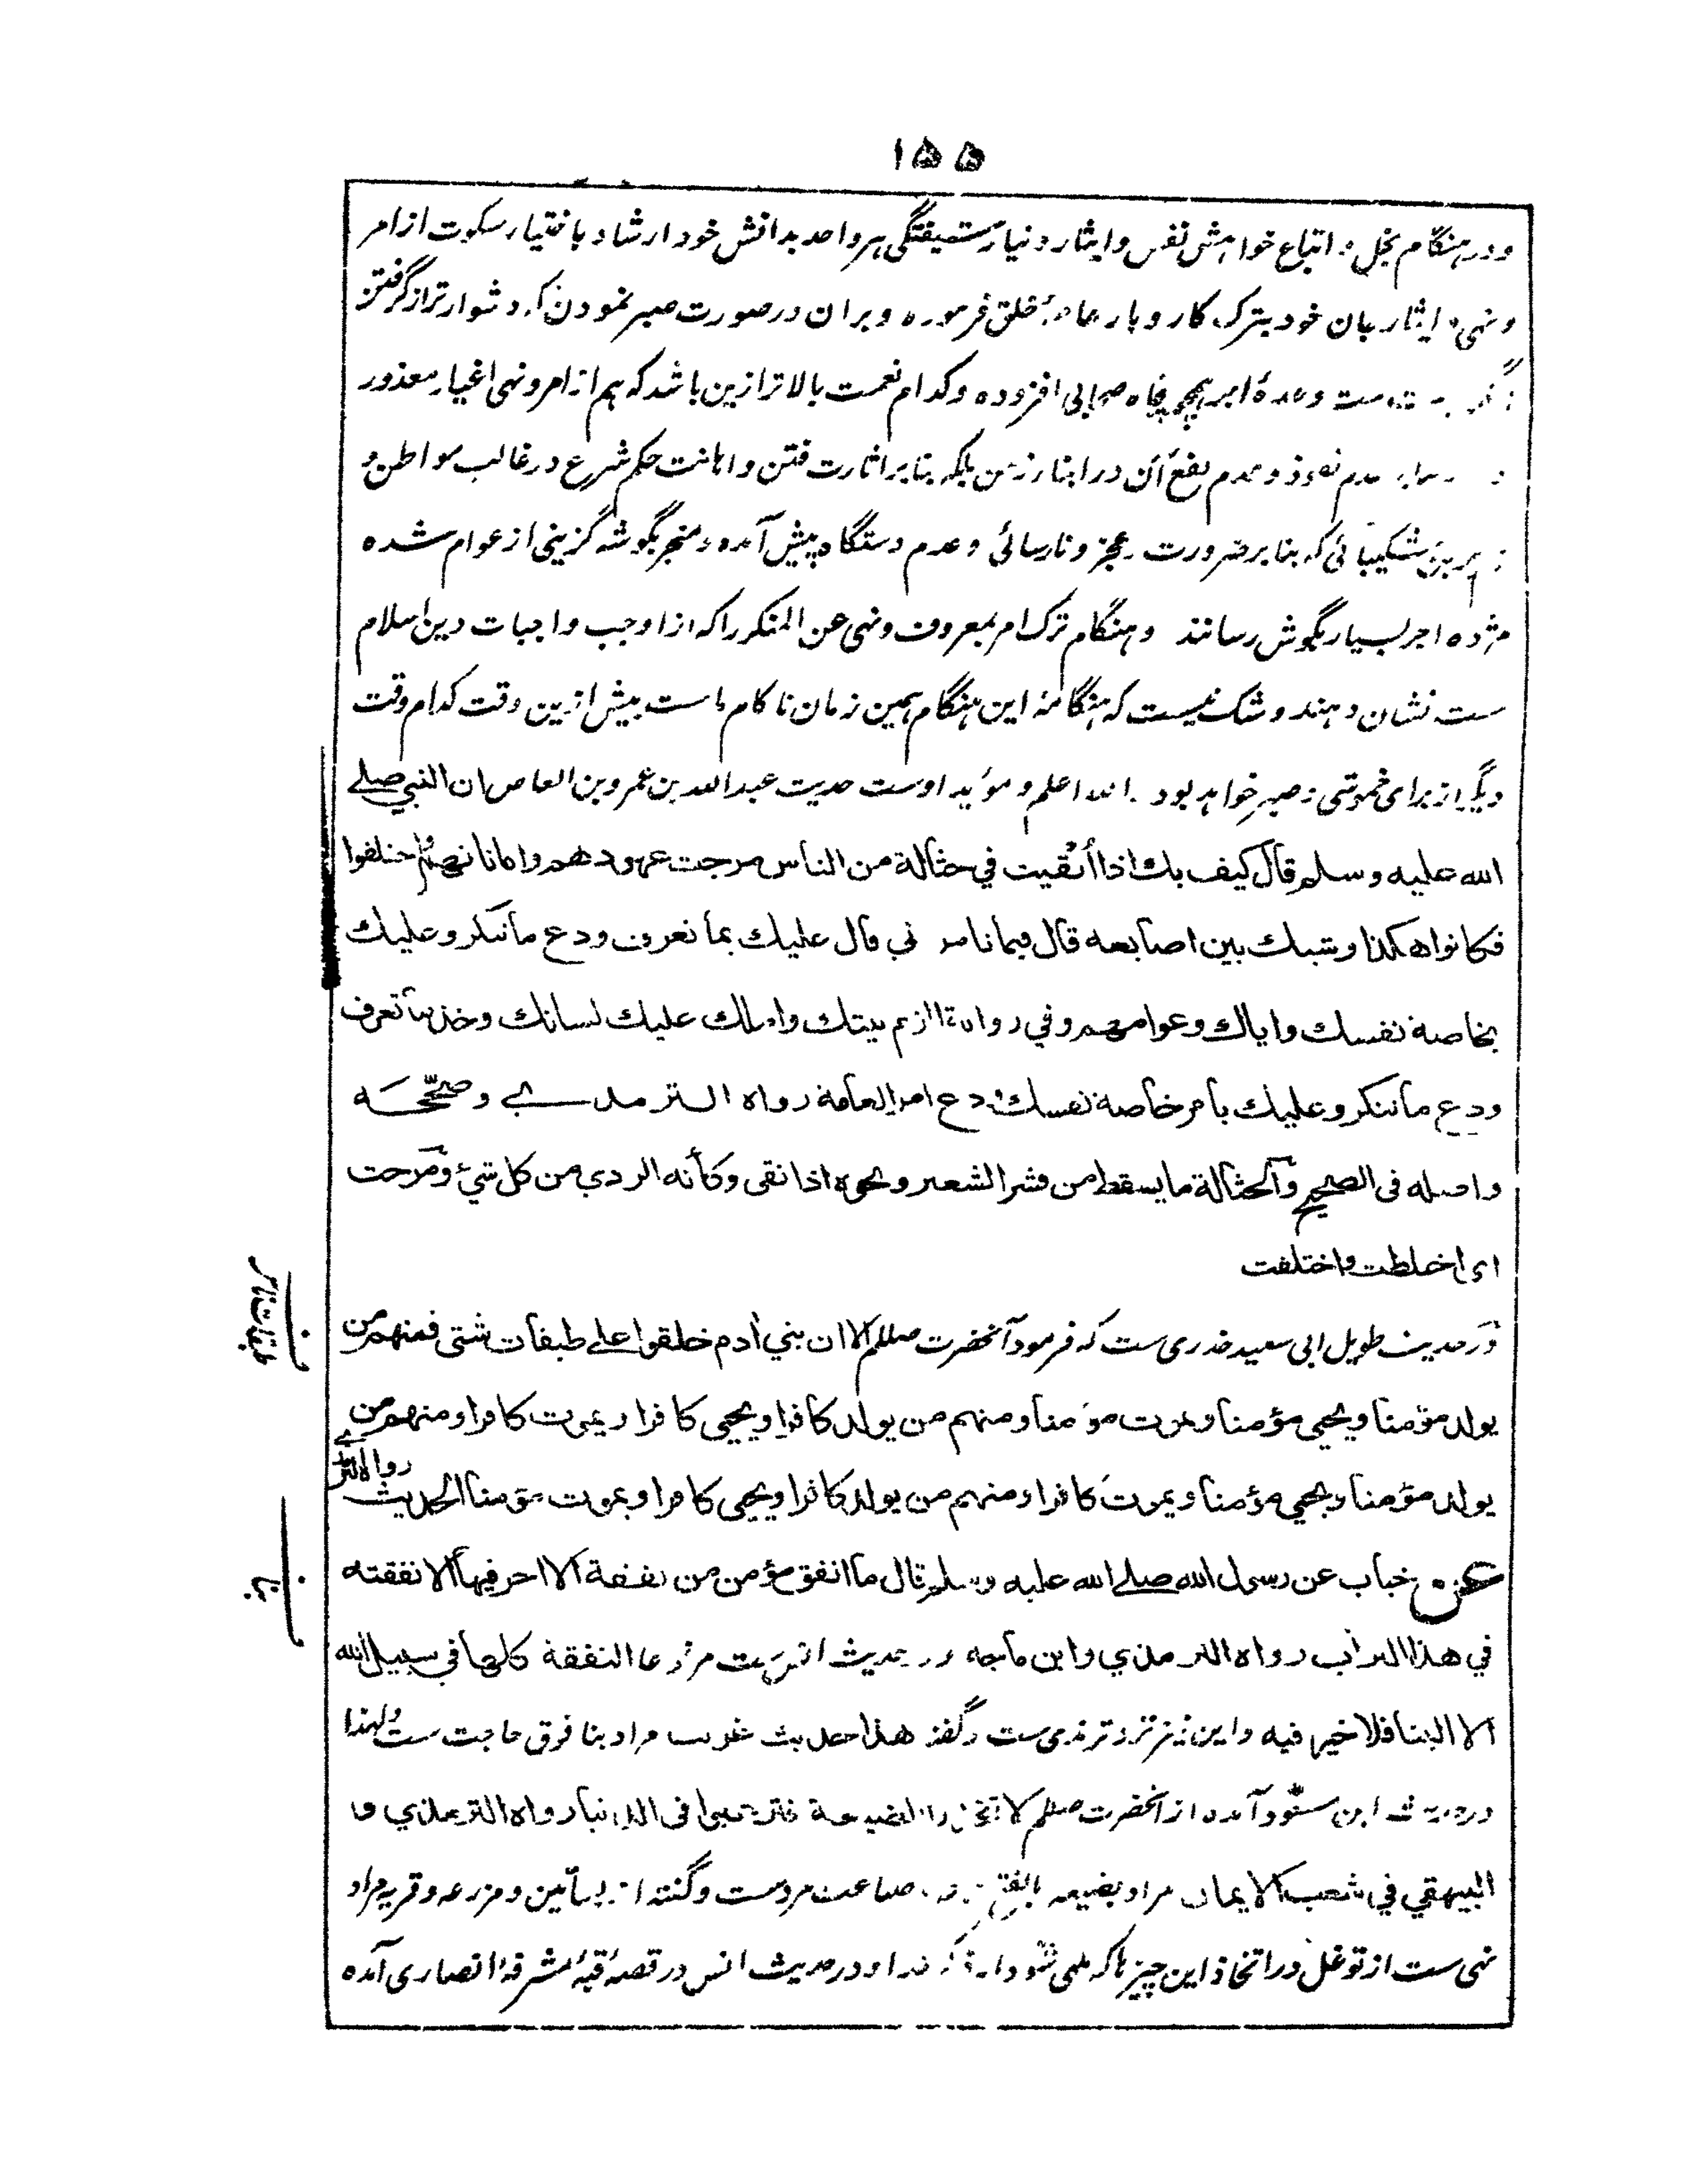 ۱۵۵
ودر هنگام بخل و اتباع خواهش نفس و ایثار دنیا و شیفتگی هر واحد بدانش خود ارشاد باختیار سکوت از امر
ونهی و ایثار بان خود بترک کار و بار عامهٔ خلق فرموده و بران در صورت صبر نمودن که دشوارتر از گرفتن
ست وعدهٔ اجر همچو پنجاه صحابی افزوده وکدام نعمت بالاتر ازین باشد که هم از امر ونهی اغیار معذور
عدم نفوذ وعدم نفع آن در ابنار زمن بلکه بنابر اثارت فتن و اهانت حکم شرع در غالب مواطن و
هم برین شکیبائی که بنابر ضرورت عجز ونارسائی وعدم دستگاه پیش آمده ومنجر بگوشه گزینی از عوام شده
مژده اجر بسیار بگوش رسانند وهنگام ترک امر بمعروف ونهی عن المنکر را که از اوجب واجبات دین اسلام
ست نشان دهند وشک نیست که هنگامهٔ این هنگام همین زمان ناکام ماست بیش ازین وقت کدام وقت
دیگر از برای خموشی وصبر خواهد بود والله اعلم ومؤید اوست حدیث عبدالله بن عمرو بن العاص ان النبي صلے
الله عليه وسلم قال كيف بك اذا أبقيت في حثالة من الناس مرجت عهودهم واماناتهم واختلفوا
فكانوا هكذا وشبك بين اصابعه قال فبما تامرني قال عليك بما تعرف ودع ما تنكر وعليك
بخاصة نفسك واياك وعوامهم وفي رواية الزم بيتك واملك عليك لسانك وخذ ما تعرف
ودع ما تنكر وعليك بأمر خاصة نفسك ودع امر العامة رواه الترمذي وصححه
واصله في الصحيح والحثالة ما يسقط من قشر الشعير ونحوه اذا نقى وكأنه الردي من كل شيء ومرجت
اي اختلطت واختلفت
ودر حدیث طویل ابی سعید خدری ست که فرمود آنحضرت صللم الا ان بني أدم خلقوا على طبقات شتى فمنهم من
يولد مؤمنا ويحيى مؤمنا ويموت مؤمنا ومنهم من يولد كافرا ويحيى كافرا ويموت كافرا ومنهم من
يولد مؤمنا ويحيى مؤمنا ويموت كافرا ومنهم من يولد كافرا ويحيى كافرا ويموت مؤمنا الحديث
عن خباب عن رسول الله صلے الله عليه وسلم قال ما انفق مؤمن من نفقة الا اجر فيها الا نفقته
في هذا التراب رواه الترمذي وابن ماجه ودر حدیث انس ست مرفوعا النفقة كلها في سبيل الله
الا البنا فلا خير فيه واین نیز نزد ترمذی ست وگفته هذا حديث غريب مراد بنا فوق حاجت ست ولهذا
ودر حدیث ابن مسعود آمده از آنحضرت صللم لا تتخذوا الضيعة فترغبوا فى الدنيا رواه الترمذي و
البيهقي في شعب الايمان مراد بضیعه بالفتح صناعت مردست وگفته اند بساتین ومزرعه وقریه مراد
نهی ست از توغل در اتخاذ این چیزها که ملهی شود از ذکر خدا ودر حدیث انس در قصهٔ قبهٔ مشرفهٔ انصاری آمده
طبقات ناس
بنا